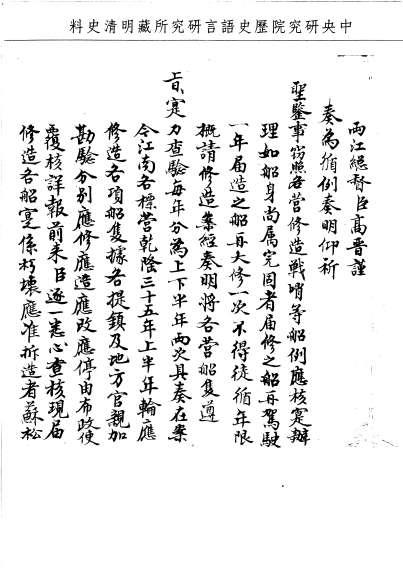 中央研究院歷史語言研究所藏明清史料
兩江總督臣高晉謹
奏為循例奏明仰祈
聖鑒事竊照各營修造戰哨等船例應核寔辦
理如船身尚屬完固者屆修之船再駕駛
一年屆造之船再大修一次不得徒循年限
概請修造業經奏明將各營船隻遵
旨寔力查驗每年分為上下半年兩次具奏在案
今江南各標營乾隆三十五年上半年輪應
修造各項船隻據各提鎮及地方官親加
勘驗分別應修應造應改應停由布政使
覆核詳報前來臣逐一悉心查核現屆
修造各船寔係朽壞應准拆造者蘇松